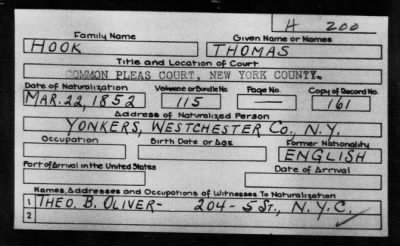 H 200
Family Name Given Name or Names
HOOK THOMAS
Title and Location of Court
COMMON PLEAS COURT, NEW YORK COUNTY.
Date of Naturalization Volume or Bundle No. Page No. Copy of Record No.
MAR. 22, 1852 115 — 161
Address of Naturalized Person
YONKERS, WESTCHESTER CO., N.Y.
Occupation Birth Date or Age Former Nationality
ENGLISH
Port of Arrival in the United States Date of Arrival
Names, Addresses and Occupations of Witnesses To Naturalization
1 THEO. B. OLIVER - 204 - 5 ST., N.Y.C.
2